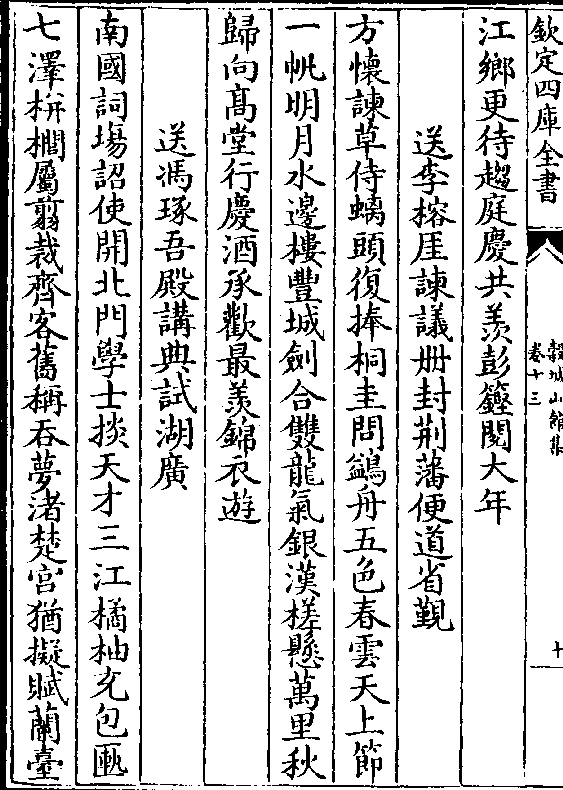 欽定四庫全書
穀城山館集
卷十三
十
江鄉更待趨庭慶共羨彭籛閱大年
送李榕厓諫議册封荆藩便道省覲
方懷諫草侍螭頭復捧桐圭問鷁舟五色春雲天上節
一帆明月水邊樓豐城劍合雙龍氣銀漢槎懸萬里秋
歸向髙堂行慶酒承歡最羨錦衣遊
送馮琢吾殿講典試湖廣
南國詞塲詔使開北門學士掞天才三江橘柚充包匭
七澤栟櫚屬翦裁齊客舊稱吞夢渚楚宫猶擬賦蘭臺